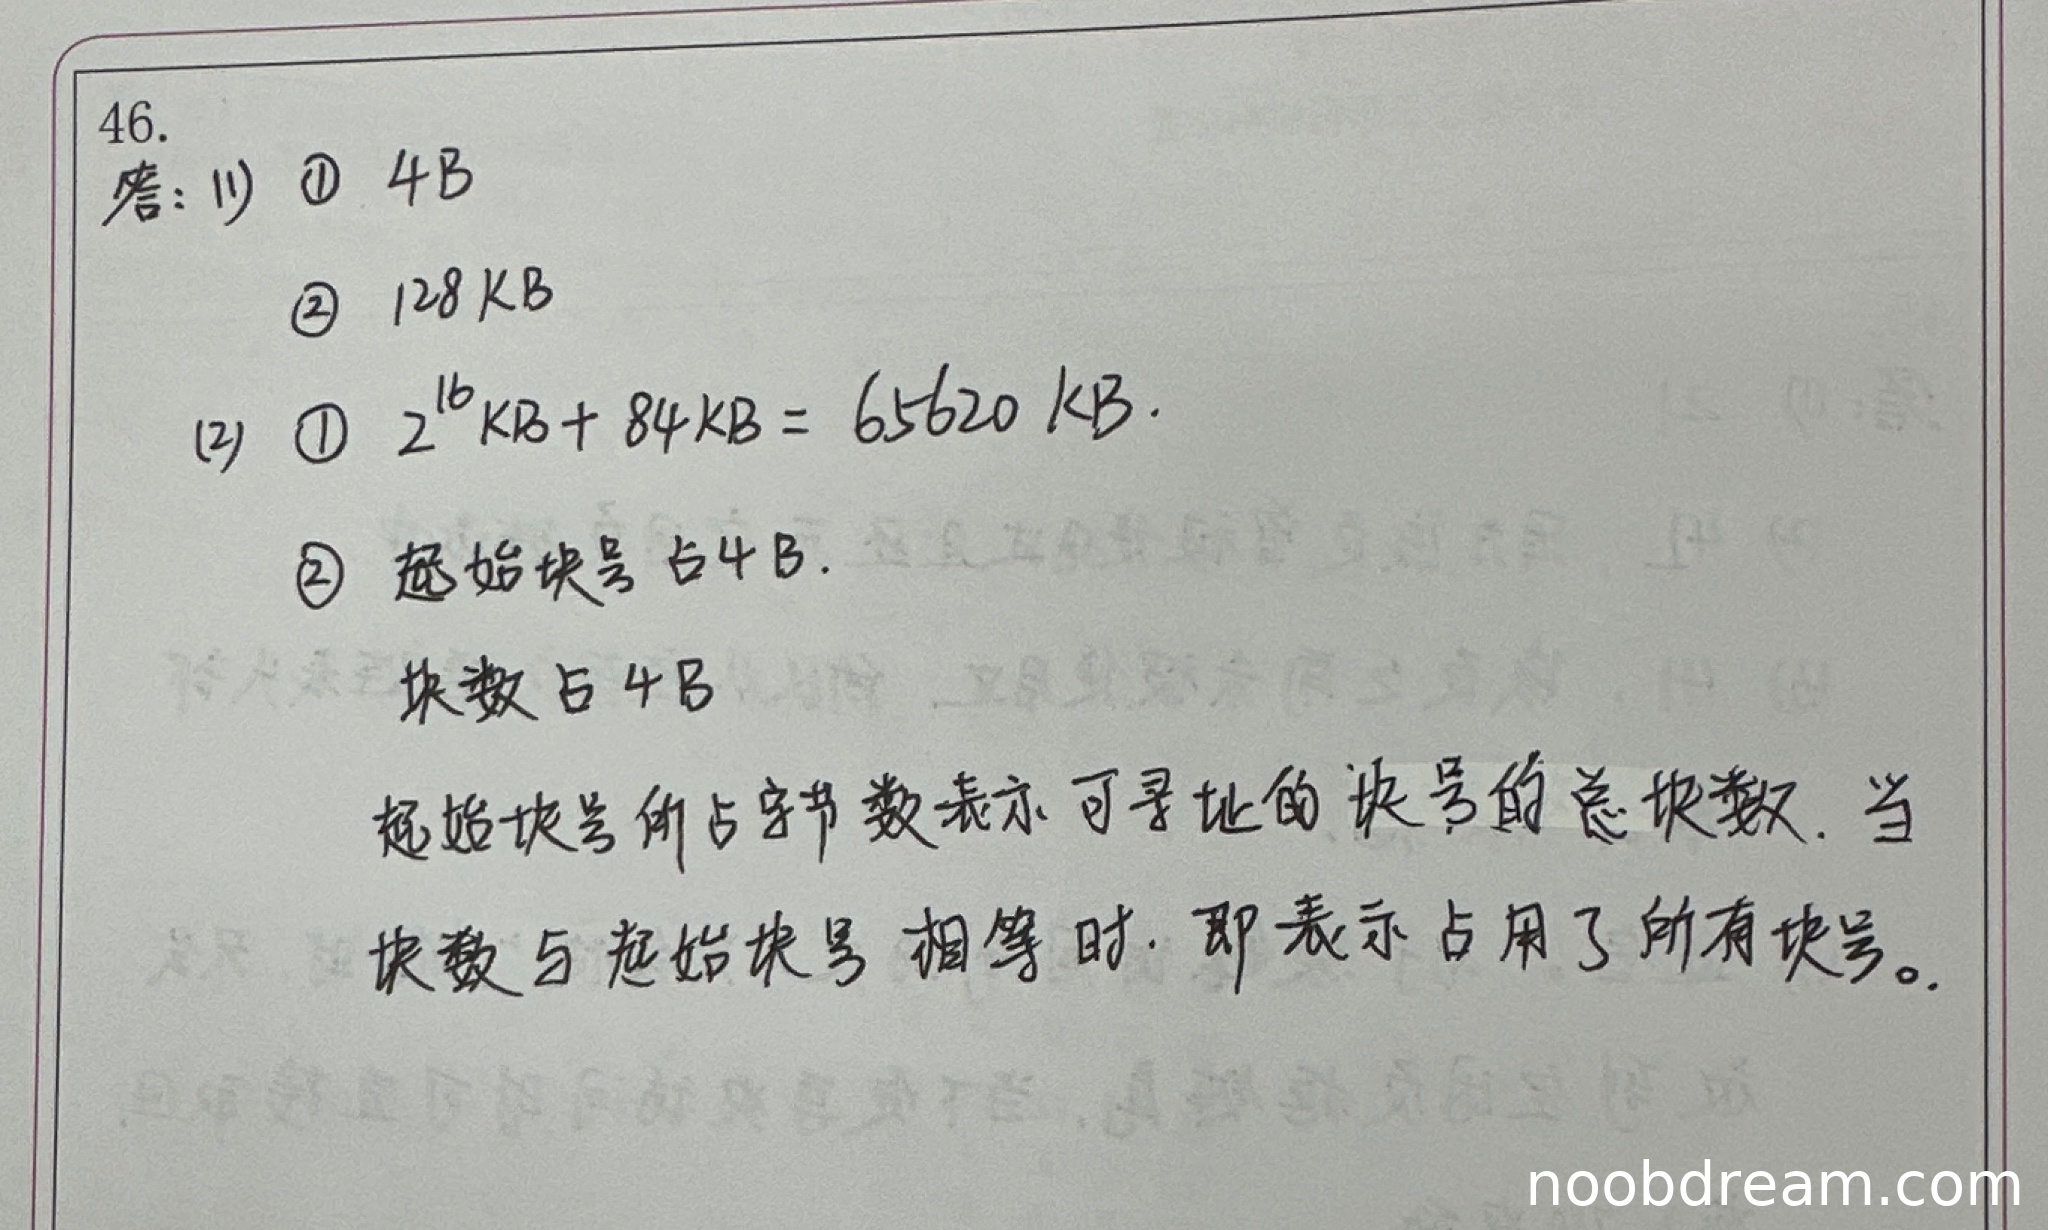 46.
答:(1) ① 4B
② 128KB
(2) ① 2^16 KB + 84KB = 65620 KB.
② 起始块号占4B.
块数占4B
起始块号所占字节数表示可寻址的块号的总块数.当
块数与起始块号相等时.即表示占用了所有块号。.
noobdream.com